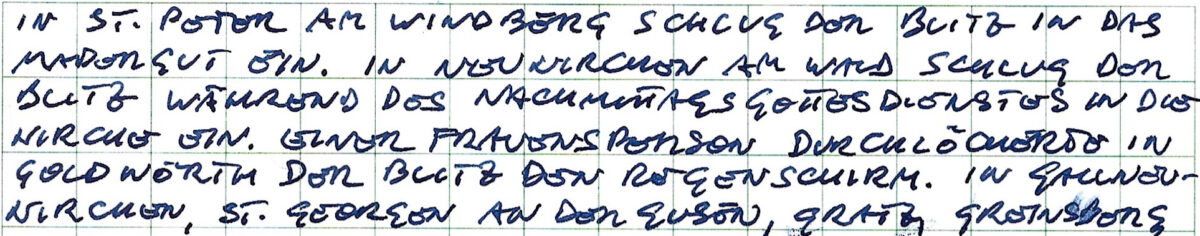 IN ST. PETER AM WINDBERG SCHLUG DER BLITZ IN DAS
MADERGUT EIN. IN NEUKIRCHEN AM WALD SCHLUG DER
BLITZ WÄHREND DES NACHMITTAGSGOTTESDIENSTES IN DIE
KIRCHE EIN. EINER FRAUENSPERSON DURCHLÖCHERTE IN
GOLDWÖRTH DER BLITZ DEN REGENSCHIRM. IN GALLNEU-
KIRCHEN, ST. GEORGEN AN DER GUSEN, GRATZ, GREINSBERG